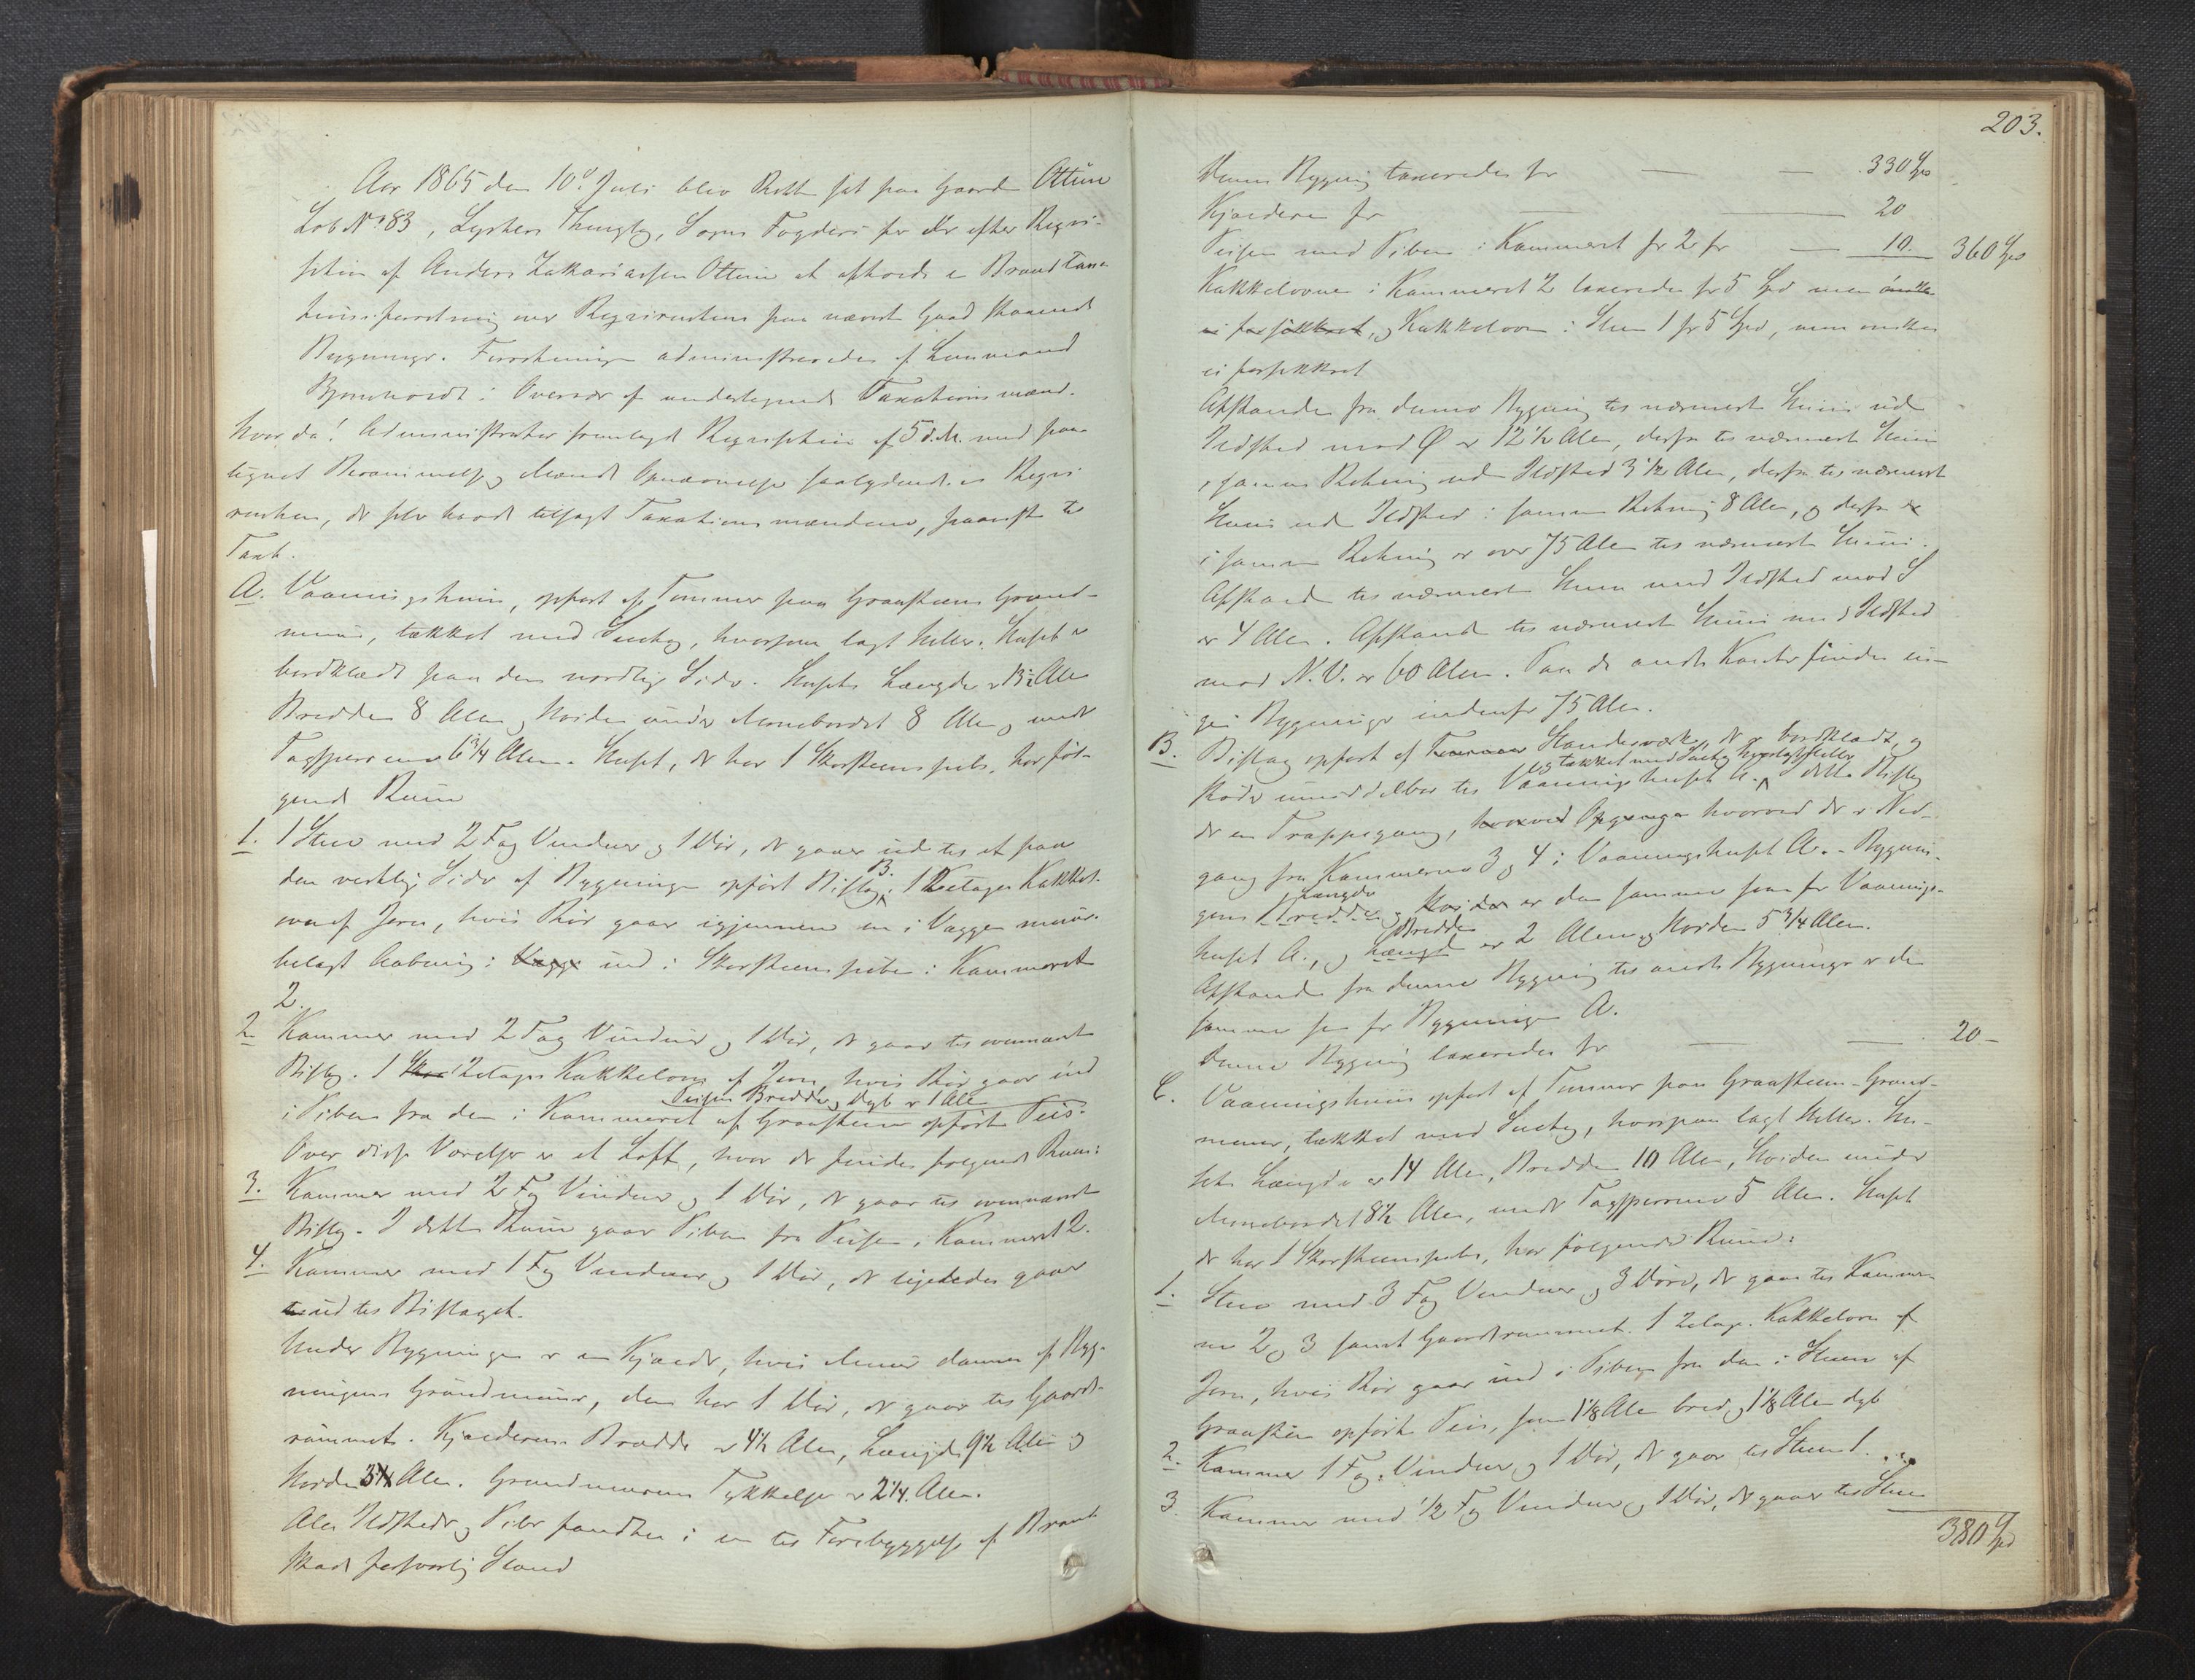 Aar 1865 den 10de Juli blev Rett sat paa Gaarden Ottum
Lob No 83, Lysters Thinglag, Sogns Fogderi for der efter Reqvi-
sition af Anders Zakariassen Ottum at afholde en Brandtaxa-
tionsforretning over Reqvirentens paa nævnte Gaard staaende
Bygninger. Forretningen administreredes af Lensmand
Bjornhordt i Overvær af undertegnede Taxationsmænd.
Hvorda! Administrator fremlagde Reqvisition af 5 d.M. med paa-
tegnet Berammelse og Mænds Opnævnelse saalydende. Reqvi-
renten, der selv havde tilsagt Taxationsmændene, paaviste til
Taxt.
A. Vaaningshuus, opført af Tømmer paa Graasteens Grund-
muur, tækket med Sudtag, hvorpaa lagt Heller. Huset er
bordklædt paa den nordlige Side. Husets Længde er 13½ Alen
Bredden 8 Alen og Høiden under Mønebordet 8 Alen og under
Tagsperrerne 6¾ Alen. Huset, der har 1 Skorsteenspibe, har føl-
gende Rum
1. 1 Stue med 2 Fag Vinduer og 1 Dør, der gaaer ud til et paa
den vestlige Side af Bygningen opført Bislag B. 1 2etages Kakkel-
ovn af Jern, hvis Rør gaar igjennem en i Væggen muur-
belagt Aabning i Vægge ind i Skorsteenspiben i Kammeret
2.
2. Kammer med 2 Fag Vinduer og 1 Dør, der gaar til ovennævnte
Bislag. 1 2etages Kakkelovn af Jern, hvis Rør gaar ind
Peisens Bredde og Dyb er 1 Alen
i Piben fra den i Kammeret af Graasteen opførte Peis.
Over disse Værelser er et Loft, hvor der findes følgende Rum:
3. Kammer med 2 Fag Vinduer og 1 Dør, der gaar til ovennævnte
Bislag. I dette Rum gaar Piben fra Peisen i Kammeret 2.
4. Kammer med 1 Fag Vinduer og 1 Dør, der ligeledes gaar
ud til Bislaget.
Under Bygningen er en Kjælder, hvis Muur dannes af Byg-
ningens Grundmuur, den har 1 Dør, der gaar til Gaards-
rummet. Kjælderens Bredde er 4½ Alen, Længde 9½ Alen og
Høiden 3¼ Alen. Grundmurens Tykkelse er 2¼ Alen.
Alle Ildsteder og Piber fandtes i en til Forebyggelse af Brand-
skade forsvarlig Stand
203.
Denne Bygning taxeredes for — — 330 Spd
Kjælderen for — — 20
Peisen med Piben i Kammeret for 2 for — 10. 360 Spd
Kakkelovnen i Kammeret 2 taxeredes for 5 Spd men ønskes
ei forsikkret, og Kakkelovn i Stuen 1 for 5 Spd, men ønskes
ei forsikkret
Afstanden fra denne Bygning til nærmeste Huus uden
Ildsted mod Ø er 12½ Alen, derfra til nærmeste Huus
i samme Retning uden Ildsted 3½ Alen, derfra til nærmeste
Huus uden Ildsted i samme Retning 8 Alen, og derfra
i samme Retning er over 75 Alen til nærmeste Huus.
Afstand til nærmeste Huus med Ildsted mod S
er 4 Alen. Afstand til nærmeste Huus med Ildsted
mod N.V. er 60 Alen. Paa de andre Kanter findes in-
gen Bygninger indenfor 75 Alen.
B. Bislag opført af Tømmer Standerværk, der er bordklædt, og
og tækket med Sudtag hvorpaa lagt Heller
støder umiddelbar til Vaaningshuset A. I dette Bislag
er en Trappegang, hvorved Opgangen hvorved der er Ned-
gang fra Kammerne 3 og 4 i Vaaningshuset A. - Bygnin-
Længde
gens Bredde og Høiden er den samme som for Vaanings-
Bredde
huset A., og Længde er 2 Alen og Høiden 5¾ Alen.
Afstanden fra denne Bygning til andre Bygninger er den
samme som for Bygningen A.
Denne Bygning taxeredes for — — 20 -
C. Vaaningshuus opført af Tømmer paa Graasteen-Grund-
muur, tækket med Sudtag, hvorpaa lagt Heller. Hu-
sets Længde er 14 Alen, Bredden 10 Alen, Høiden under
Mønebordet 8½ Alen, under Tagsperrerne 5 Alen. Huset
der har 1 Skorsteenspibe, har følgende Rum:
1. Stue med 3 Fag Vinduer og 3 Døre, der gaar til Kammer-
ne 2 og 3 samt Gaardsrummet. 1 2etages Kakkelovn af
Jern, hvis Rør gaar ind i Piben fra den i Stuen af
Graasteen opførte Peis, som 1⅛ Alen bred og 1⅛ Alen dyb
2. Kammer 1 Fag Vinduer og 1 Dør, der gaar til Stuen 1.
3. Kammer med ½ Fag Vinduer og 1 Dør, der gaar til Stuen
380 Spd